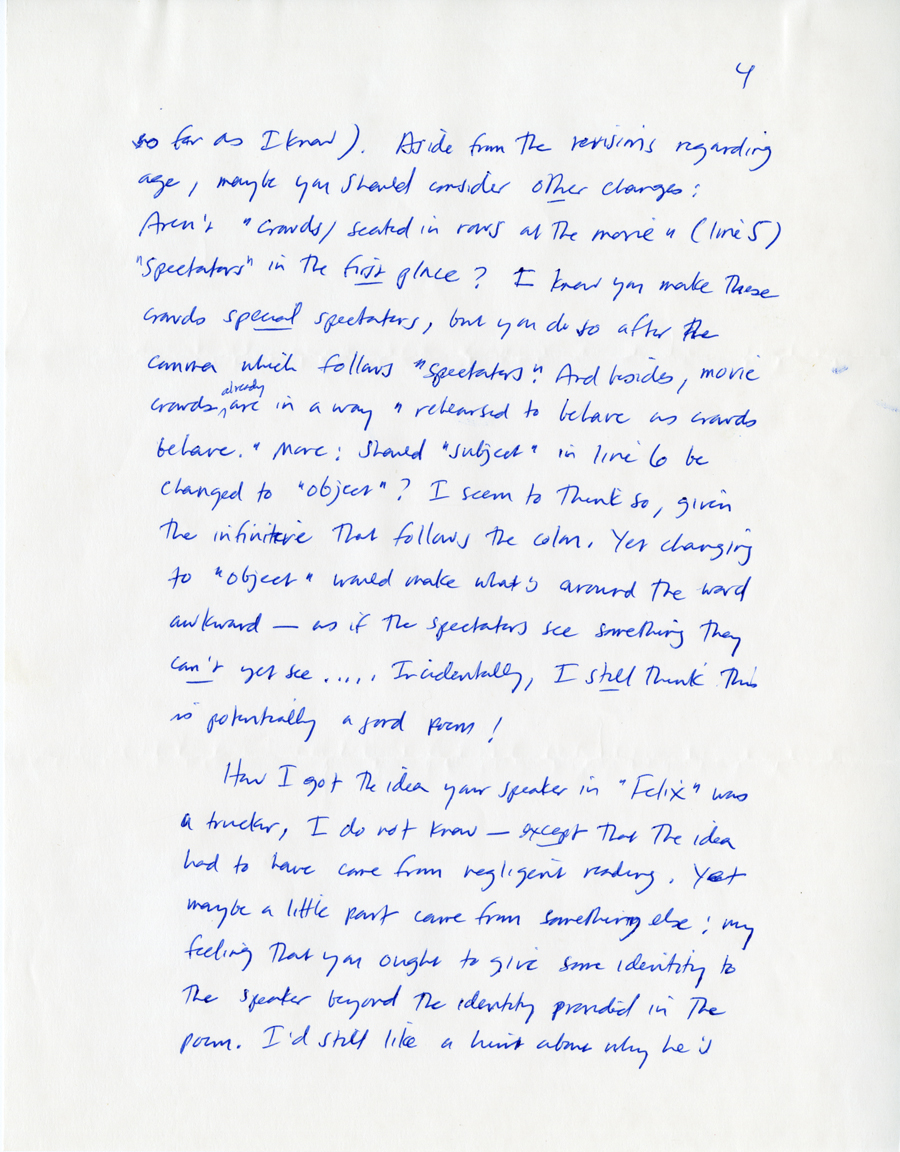 4
so far as I know). Aside from the revisions regarding
age, maybe you should consider other changes:
Aren't "crowds/ seated in rows at the movie" (line 5)
"Spectators" in the first place? I know you make these
crowds special spectators, but you do so after the
comma which follows "spectators." And besides, movie
already
crowds, are in a way "rehearsed to behave as crowds
behave." More: Should "subject" in line 6 be
changed to "object"? I seem to think so, given
the infinitive that follows the colon. Yet changing
to "object" would make what's around the word
awkward — as if the spectators see something they
can't yet see ..... Incidentally, I still think this
is potentially a good poem!
How I got the idea your speaker in "Felix" was
a trucker, I do not know — except that the idea
had to have come from negligent reading. Yet
maybe a little part came from something else: my
feeling that you ought to give some identity to
the speaker beyond the identity provided in the
poem. I'd still like a hint about why he's